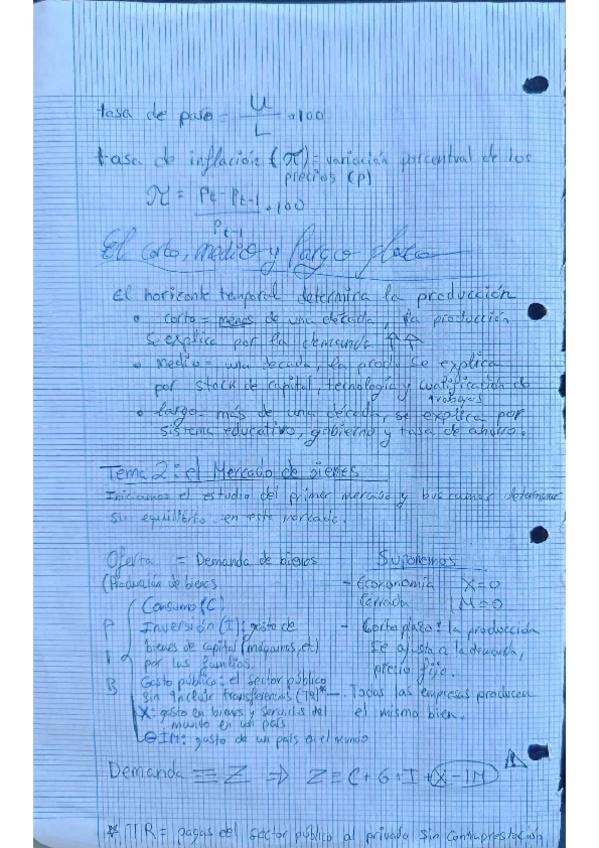 tasa de paro = U/L · 100
tasa de inflación (π) = variación porcentual de los
precios (p)
π = Pt - Pt-1 / Pt-1 · 100
El corto, medio y largo plazo
El horizonte temporal determina la producción
• corto = menos de una década, la producción
se explica por la demanda ↑↑
• medio = una década, la prod. se explica
por stock de capital, tecnología y cualificación de
trabajos
• largo = más de una década, se explica por
sistema educativo, gobierno y tasa de ahorro.
Tema 2: el Mercado de bienes
Iniciamos el estudio del primer mercado y buscamos determinar
su equilibrio en este mercado.
Oferta = Demanda de bienes
(Producción de bienes)
P I B
Consumo (C)
Inversión (I): gasto de
bienes de capital (máquinas, etc)
por las familias.
Gasto público: el sector público
sin incluir transferencias (TR)*
X: gasto en bienes y servicios del
mundo en un país
⊖ IM: gasto de un país al mundo
Suponemos
- Economía X=0
cerrada IM=0
- Corto plazo: la producción
se ajusta a la demanda,
precio fijo.
- Todas las empresas producen
el mismo bien.
Demanda ≡ Z ⇒ Z ≡ C + G + I + X - IM
* TR = pagos del sector público al privado sin contraprestación